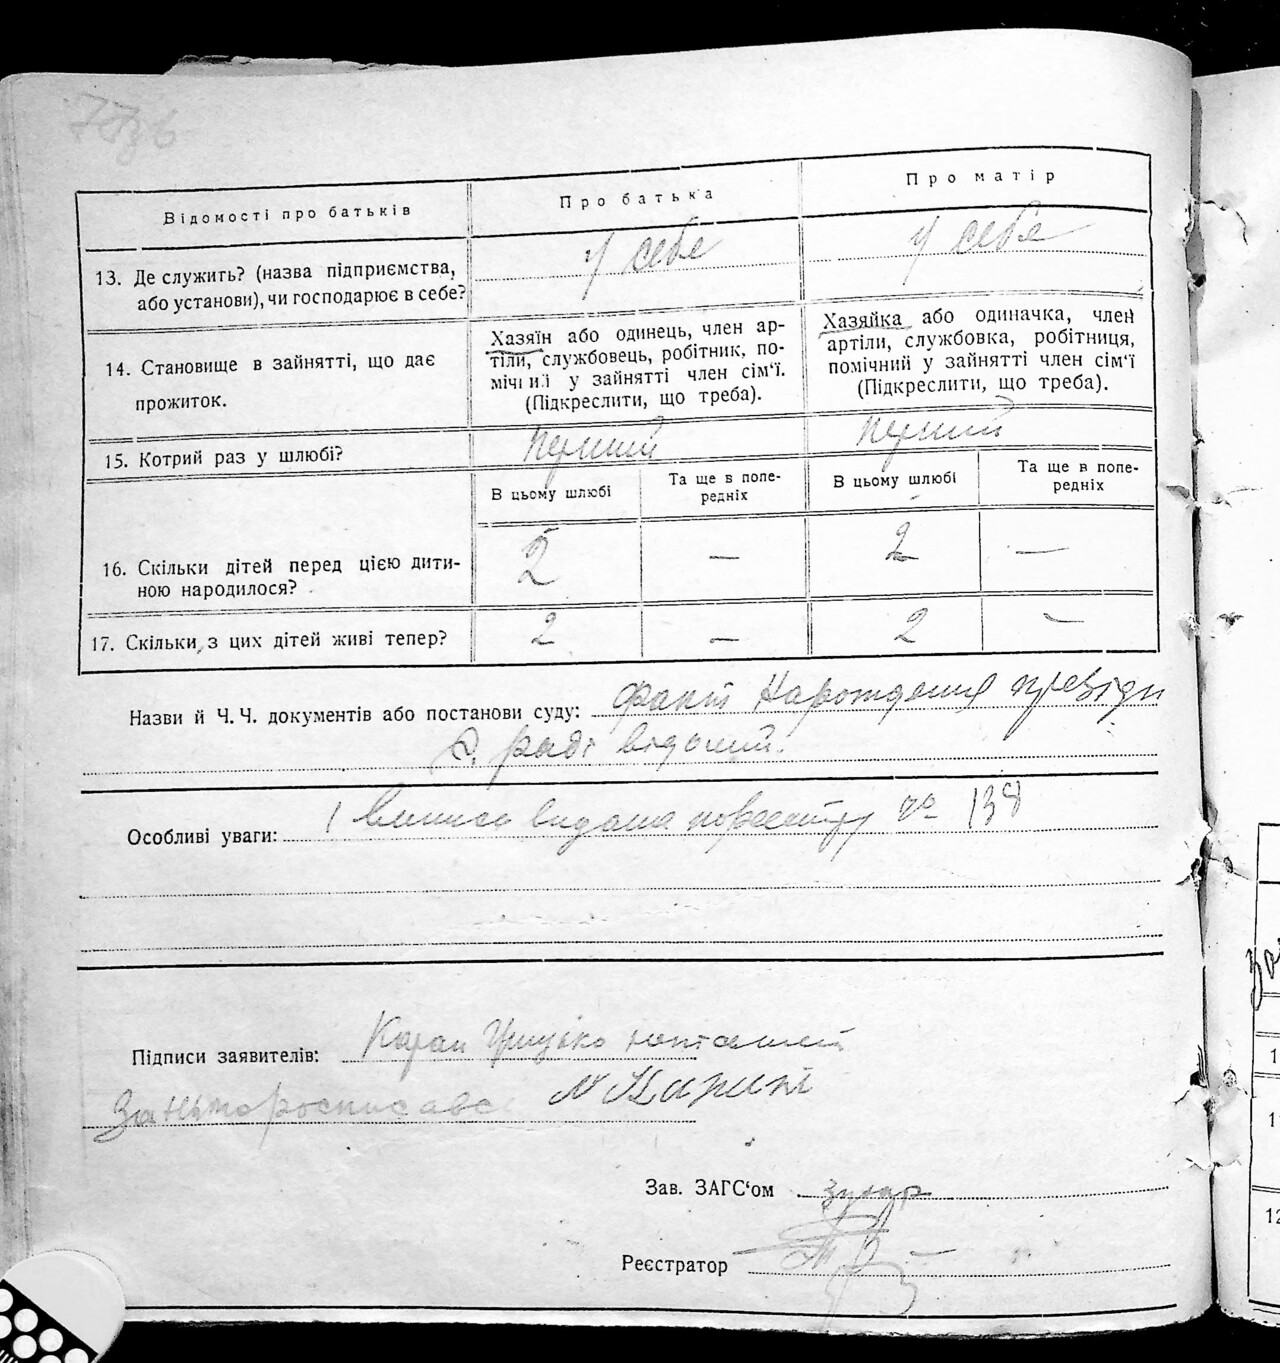 Відомості про батьків
Про батька
Про матір
13. Де служить? (назва підприємства,
або установи), чи господарює в себе?
У себе
У себе
14. Становище в зайнятті, що дає
прожиток.
Хазяїн або одинець, член ар-
тіли, службовець, робітник, по-
мічний у зайнятті член сім'ї.
(Підкреслити, що треба).
Хазяйка або одиначка, член
артіли, службовка, робітниця,
помічний у зайнятті член сім'ї
(Підкреслити, що треба).
15. Котрий раз у шлюбі?
перший
перший
В цьому шлюбі
Та ще в попе-
редніх
В цьому шлюбі
Та ще в попе-
редніх
16. Скільки дітей перед цією дити-
ною народилося?
2 — 2 —
17. Скільки з цих дітей живі тепер?
2 — 2 —
Назви й Ч. Ч. документів або постанови суду: Факт Народження
раді відомий.
Особливі уваги: 1 видана № 138
Підписи заявителів:
За
Зав. ЗАГС'ом
Реєстратор
1
1
12